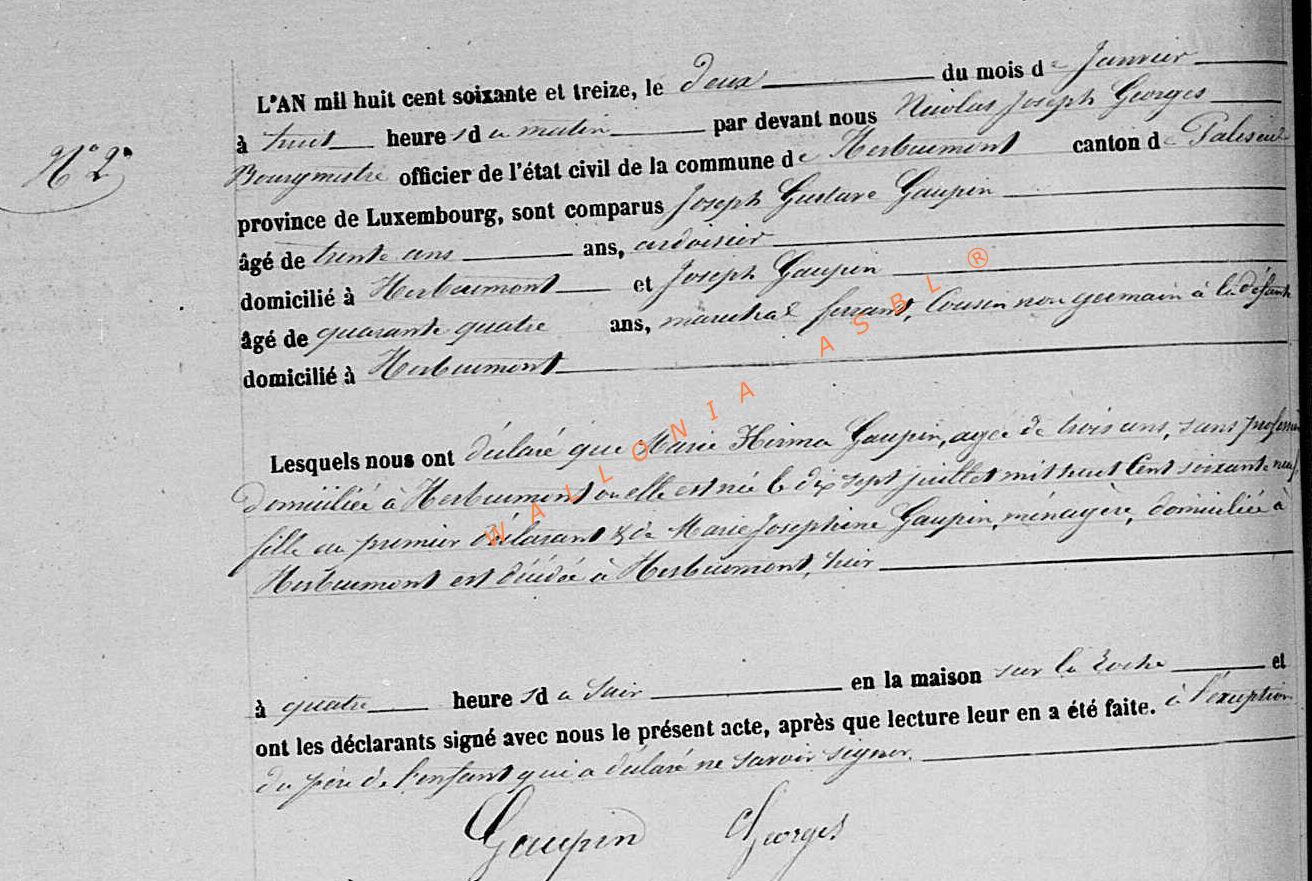 L'AN mil huit cent soixante et treize, le deux du mois de Janvier
à huit heures du matin par devant nous Nicolas Joseph Georges
N° 2
Bourgmestre officier de l'état civil de la commune de Herbeumont canton de Paliseul
province de Luxembourg, sont comparus Joseph Gustave Gaupin
âgé de trente ans ans, ardoisier
domicilié à Herbeumont et Joseph Gaupin
âgé de quarante quatre ans, maréchal ferrant, Cousin non germain à la défunte
domicilié à Herbeumont
WALLONIA ASBL ®
Lesquels nous ont déclaré que Marie Gaupin, agée de trois ans, sans profession
domiciliée à Herbeumont où elle est née le dix sept juillet mil huit Cent soixante neuf,
fille du premier déclarant & de Marie Josephine Gaupin, ménagère, domiciliée à
Herbeumont est décédée à Herbeumont, hier
à quatre heures du soir en la maison sur la Roche et
ont les déclarants signé avec nous le présent acte, après que lecture leur en a été faite. à l'exception
du père de l'enfant qui a déclaré ne savoir signer.
Gaupin Georges